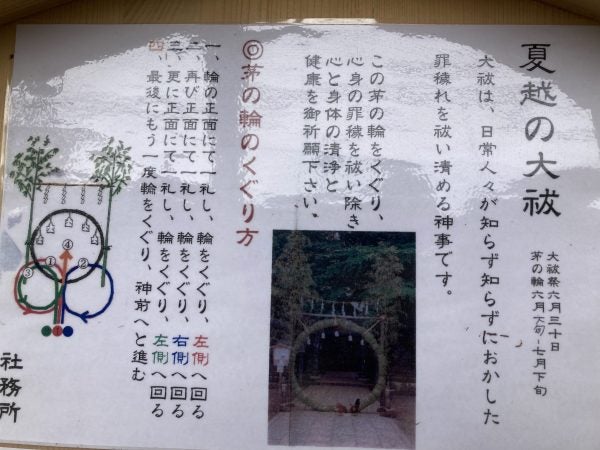 夏越の大祓
大祓祭六月三十日
茅の輪六月下旬~七月下旬
大祓は、日常人々が知らず知らずにおかした
罪穢れを祓い清める神事です。
この茅の輪をくぐり、
心身の罪穢を祓い除き
心と身体の清浄と
健康を御祈願下さい。
◎茅の輪のくぐり方
一、輪の正面にて一礼し、輪をくぐり、左側へ回る
二、再び正面にて一礼し、輪をくぐり、右側へ回る
三、更に正面にて一礼し、輪をくぐり、左側へ回る
四、最後にもう一度輪をくぐり、神前へと進む
④
①
②
③
社務所